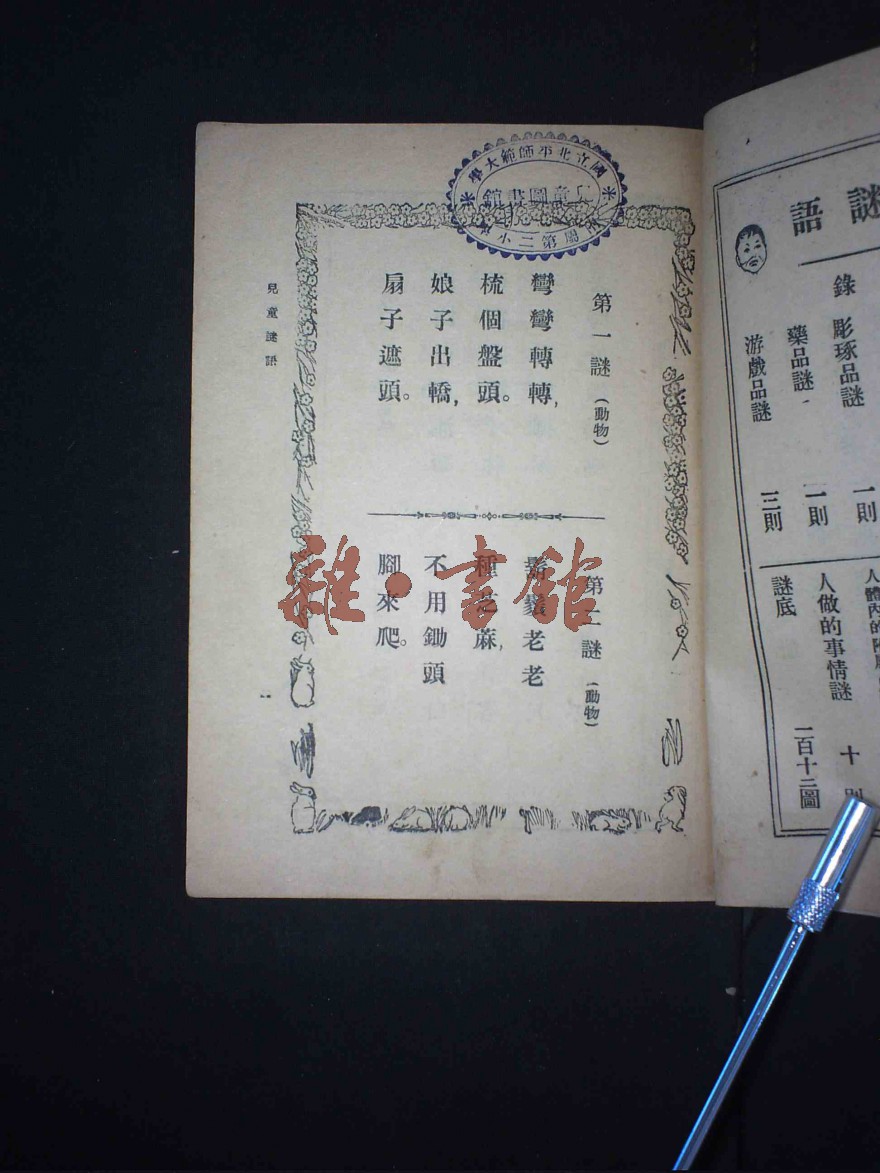 國立北平師範大學
兒童圖書館
附屬第二小學
第一謎(動物)
彎彎轉轉,
梳個盤頭。
娘子出轎,
扇子遮頭。
第二謎(動物)
鬍鬚老老
種芝蔴,
不用鋤頭
腳來爬。
兒童謎語
一
雜·書館
謎語
錄
彫琢品謎 一則
藥品謎 一則
游戲品謎 三則
人做的事情謎 十則
謎底 一百十二圖